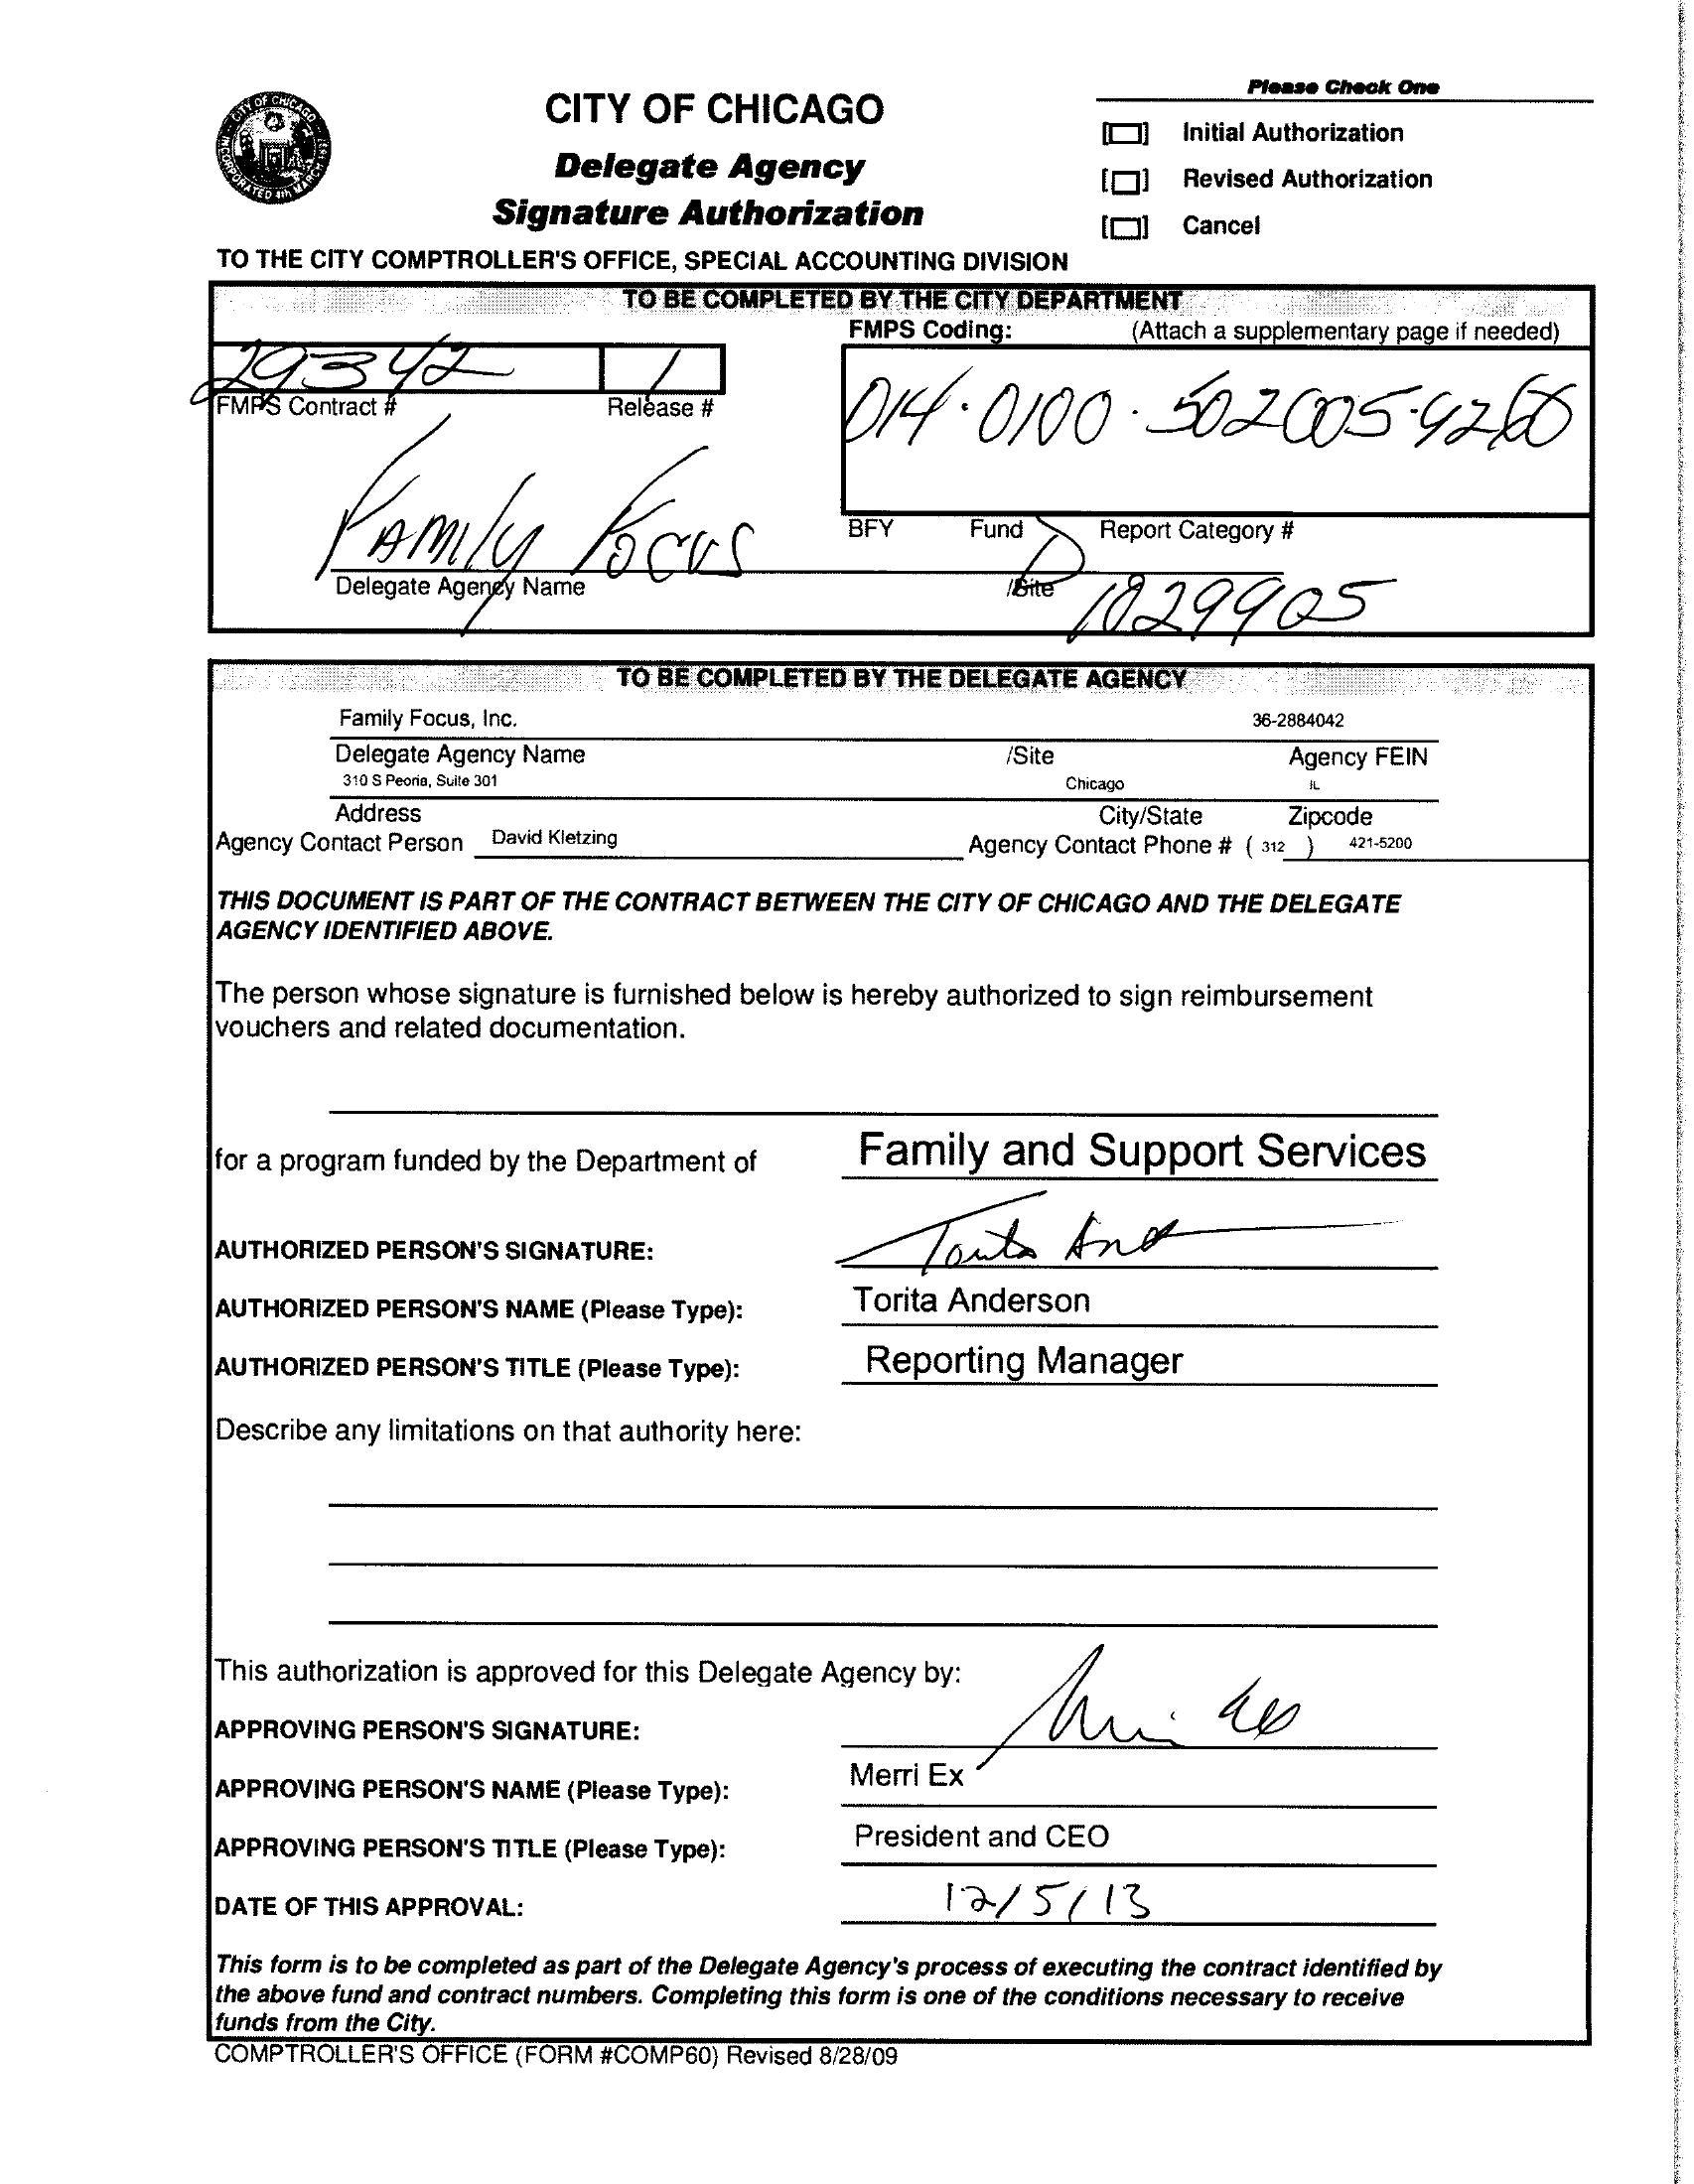 Please Check One
CITY OF CHICAGO
Delegate Agency
Signature Authorization
[☐] Initial Authorization
[☐] Revised Authorization
[☐] Cancel
TO THE CITY COMPTROLLER'S OFFICE, SPECIAL ACCOUNTING DIVISION
TO BE COMPLETED BY THE CITY DEPARTMENT
FMPS Coding: (Attach a supplementary page if needed)
29342 1
FMPS Contract # Release #
014·0100·5022005·9260
BFY Fund Report Category #
Family Focus
Delegate Agency Name /Site
1029905
TO BE COMPLETED BY THE DELEGATE AGENCY
Family Focus, Inc. 36-2884042
Delegate Agency Name /Site Agency FEIN
310 S Peoria, Suite 301 Chicago IL
Address City/State Zipcode
Agency Contact Person David Kletzing Agency Contact Phone # ( 312 ) 421-5200
THIS DOCUMENT IS PART OF THE CONTRACT BETWEEN THE CITY OF CHICAGO AND THE DELEGATE
AGENCY IDENTIFIED ABOVE.
The person whose signature is furnished below is hereby authorized to sign reimbursement
vouchers and related documentation.
for a program funded by the Department of Family and Support Services
AUTHORIZED PERSON'S SIGNATURE:
AUTHORIZED PERSON'S NAME (Please Type): Torita Anderson
AUTHORIZED PERSON'S TITLE (Please Type): Reporting Manager
Describe any limitations on that authority here:
This authorization is approved for this Delegate Agency by:
APPROVING PERSON'S SIGNATURE:
APPROVING PERSON'S NAME (Please Type): Merri Ex
APPROVING PERSON'S TITLE (Please Type): President and CEO
DATE OF THIS APPROVAL: 12/5/13
This form is to be completed as part of the Delegate Agency's process of executing the contract identified by
the above fund and contract numbers. Completing this form is one of the conditions necessary to receive
funds from the City.
COMPTROLLER'S OFFICE (FORM #COMP60) Revised 8/28/09